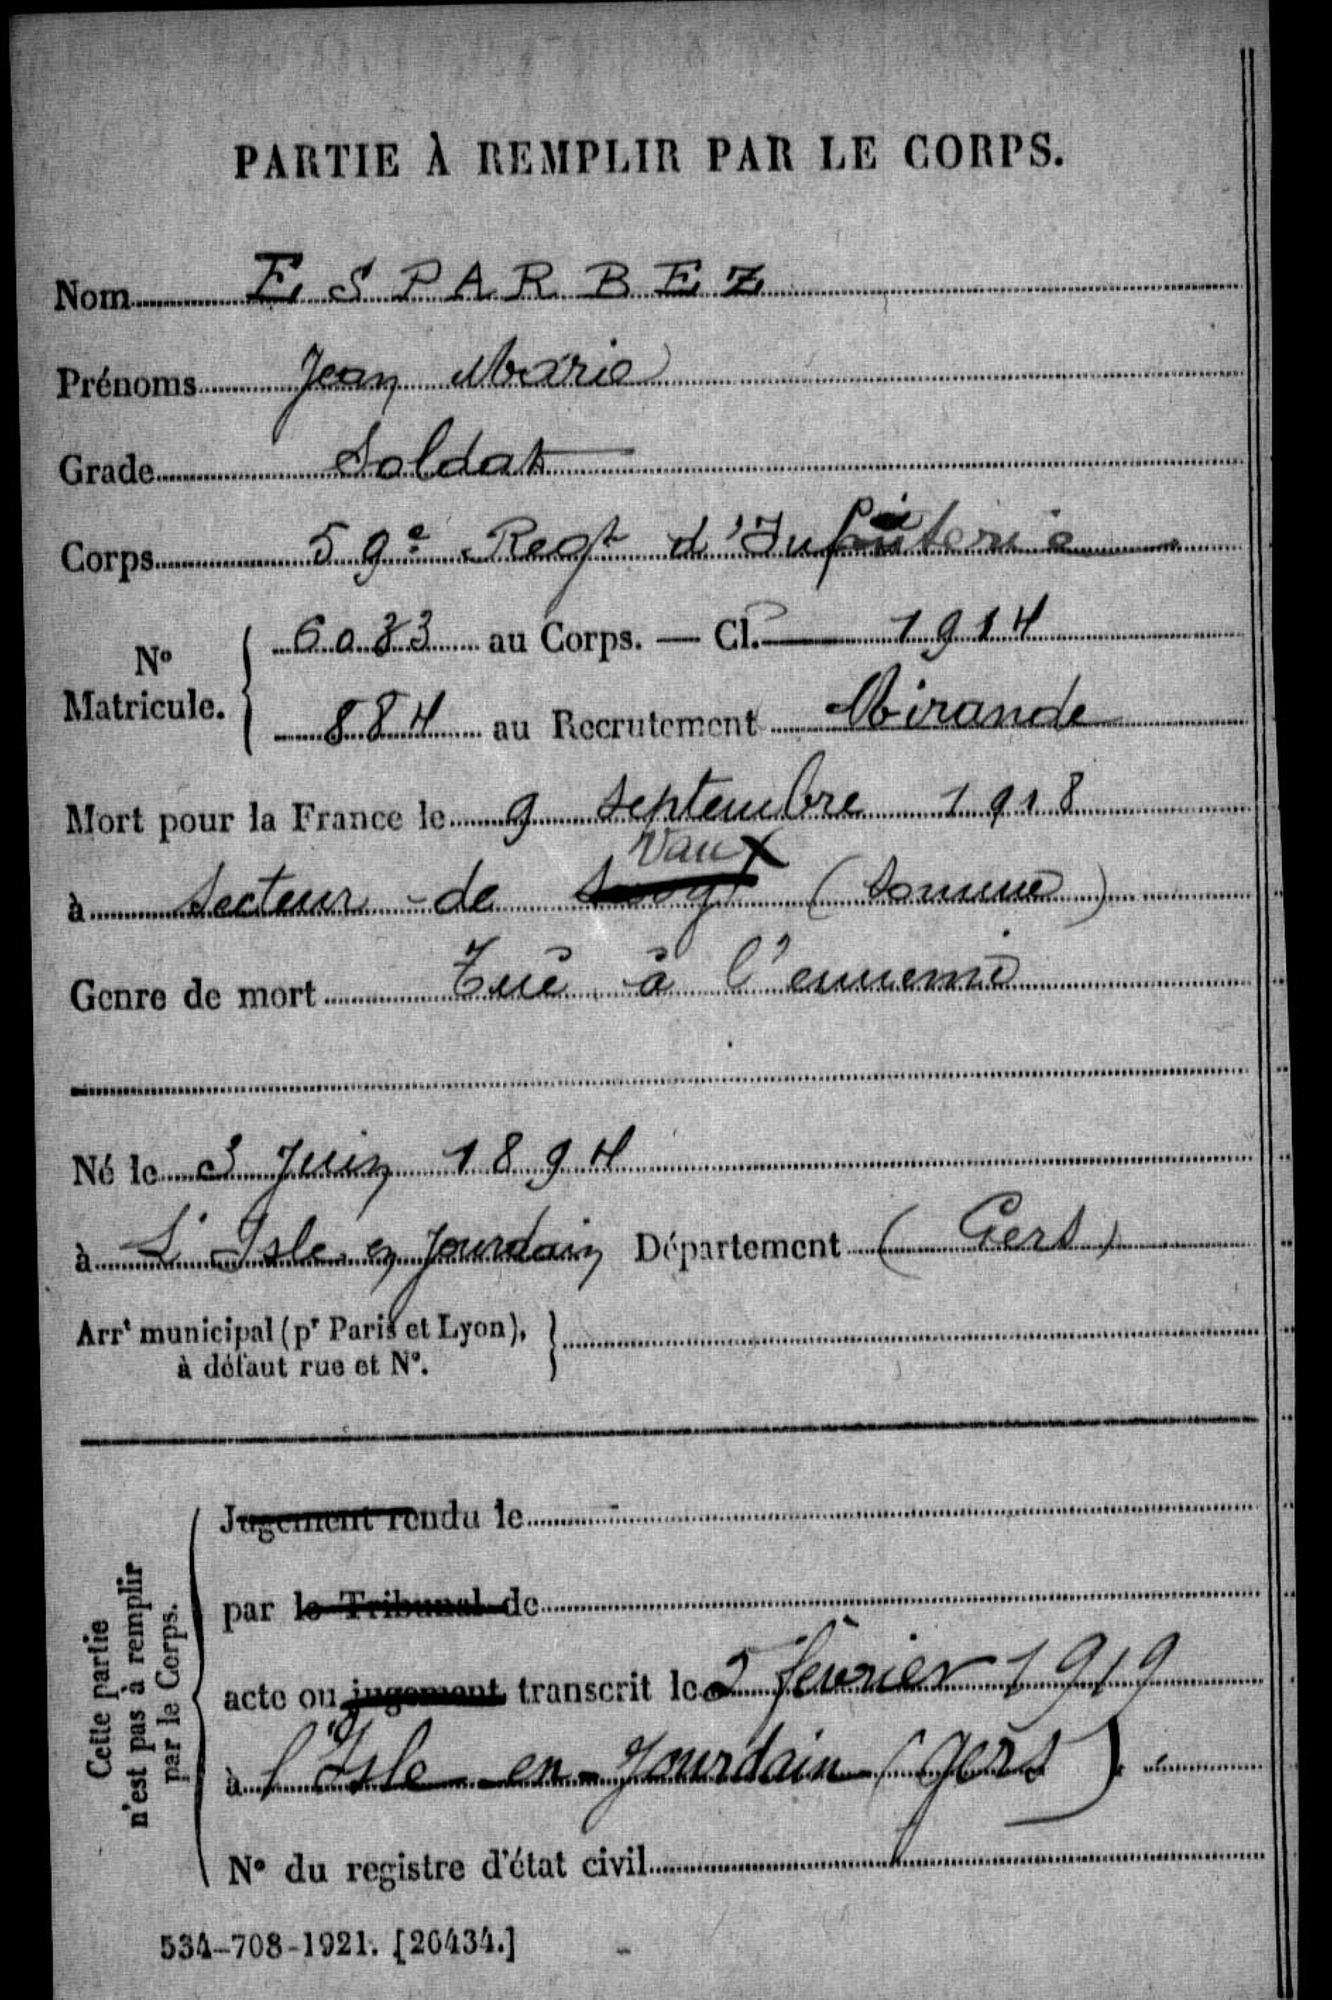 PARTIE À REMPLIR PAR LE CORPS.
Nom ESPARBEZ
Prénoms Jean Marie
Grade Soldat
Corps 59e Regt d'Infanterie
N° Matricule. 6033 au Corps. — Cl. 1914
884 au Recrutement Mirande
Mort pour la France le 9 Septembre 1918
Vaux
à Secteur de (Somme)
Genre de mort Tué à l'ennemi
Né le 3 Juin 1894
à L'Isle en Jourdain Département (Gers)
Arrt municipal (pr Paris et Lyon),
à défaut rue et N°.
Cette partie
n'est pas à remplir
par le Corps.
Jugement rendu le
par le Tribunal de
acte ou jugement transcrit le 2 février 1919
à l'Isle-en-Jourdain (Gers).
N° du registre d'état civil
534-708-1921. [26434.]